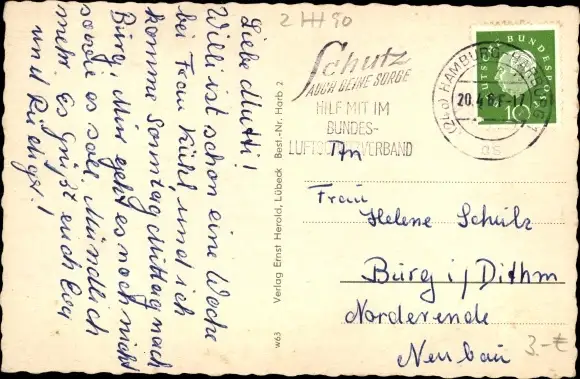 Liebe Mutti!
Willi ist schon eine Woche
bei Frau Kühl, und ich
komme Sonntag Mittag nach
Burg. Mir geht es noch nicht
so wie es soll. Mündlich
mehr. Es grüßt euch Eva
und Rüdiger!
Verlag Ernst Herold, Lübeck Best.-Nr. Harb
w63
Schutz
AUCH DEINE SORGE
HILF MIT IM
BUNDES-
LUFTSCHUTZVERBAND
(24a) HAMBURG-HARBURG 1
20.4.61-17
DEUTSCHE BUNDESPOST
10
An
Frau
Helene Schulz
Burg i/Dithm
Norderende
Neubau
3.-€